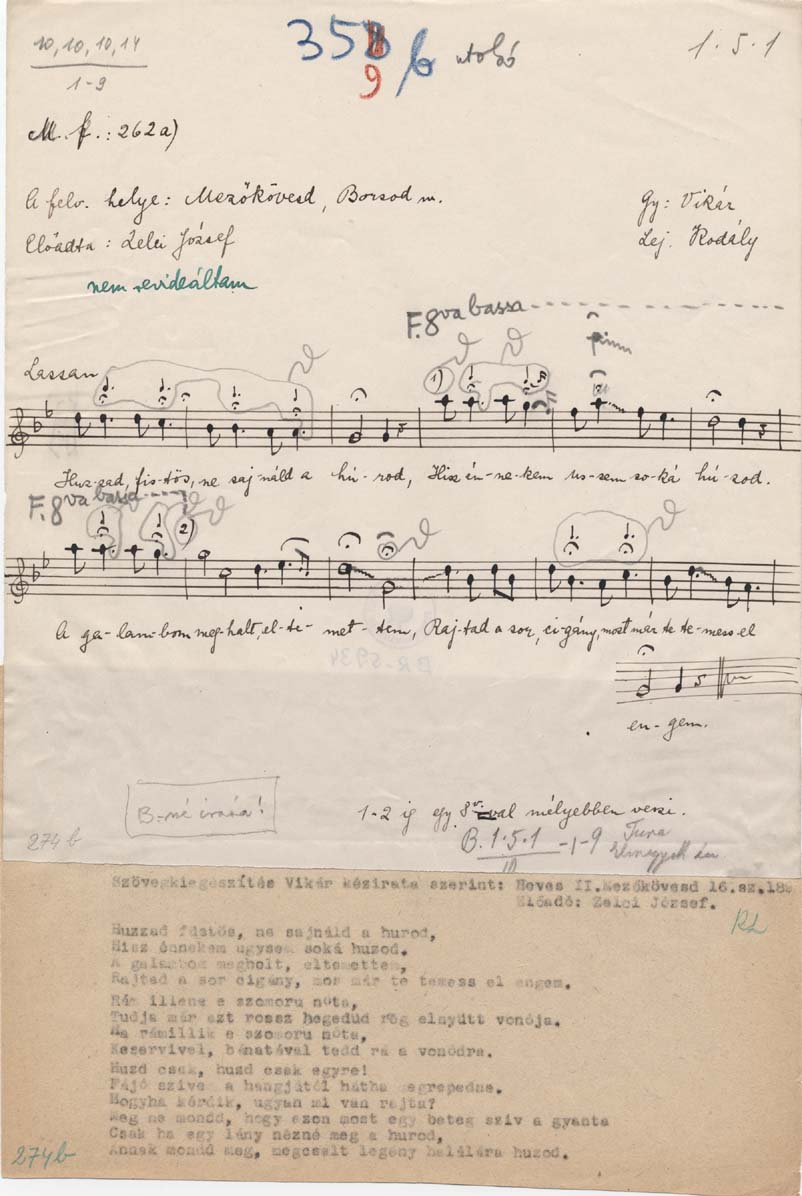 10, 10, 10, 14
1-9
359 b utolsó
1.5.1
M. F.: 262a)
A felv. helye: Mezőkövesd, Borsod m.
Gy: Vikár
Előadta: Zelei József
Lej. Kodály
nem revideáltam
F. 8va bassa
Lassan
1)
Huz-zad, füs-tös, ne saj-náld a hú-rod, Hisz én-ne-kem us-sem so-ká hú-zod.
F. 8va bassa
2)
A ga-lam-bom meg-halt, el-te-met-tem, Raj-tad a sor, ci-gány, most már te te-mess el
BR-5934
en-gem.
B-né írása!
1-2 ig egy 8va-val mélyebben veszi.
B. 1.5.1 -1-9 Tura
10
274 b
Szövegkiegészítés Vikár kézirata szerint: Heves II.Mezőkövesd 16.sz.18
Előadó: Zelei József.
RL
Huzzad füstös, ne sajnáld a hurod,
Hisz énnekem ugysem soká huzod.
A galambom megholt, eltemettem,
Rajtad a sor cigány, mos már te temess el engem.
Rám illene e szomoru nóta,
Tudja már ezt rossz hegedüd rég elnyütt vonója.
Ha rámillik e szomoru nóta,
Keservivel, bánatával tedd rá a vonódra.
Huzd csak, huzd csak egyre!
Fájó szivem a hangjától hátha megrepedne.
Hogyha kérdik, ugyan mi van rajta?
Meg ne mondd, hogy azon most egy beteg sziv a gyanta
Csak ha egy lány nézné meg a hurod,
Annak mondd meg, megcsalt legény halálára huzod.
274b